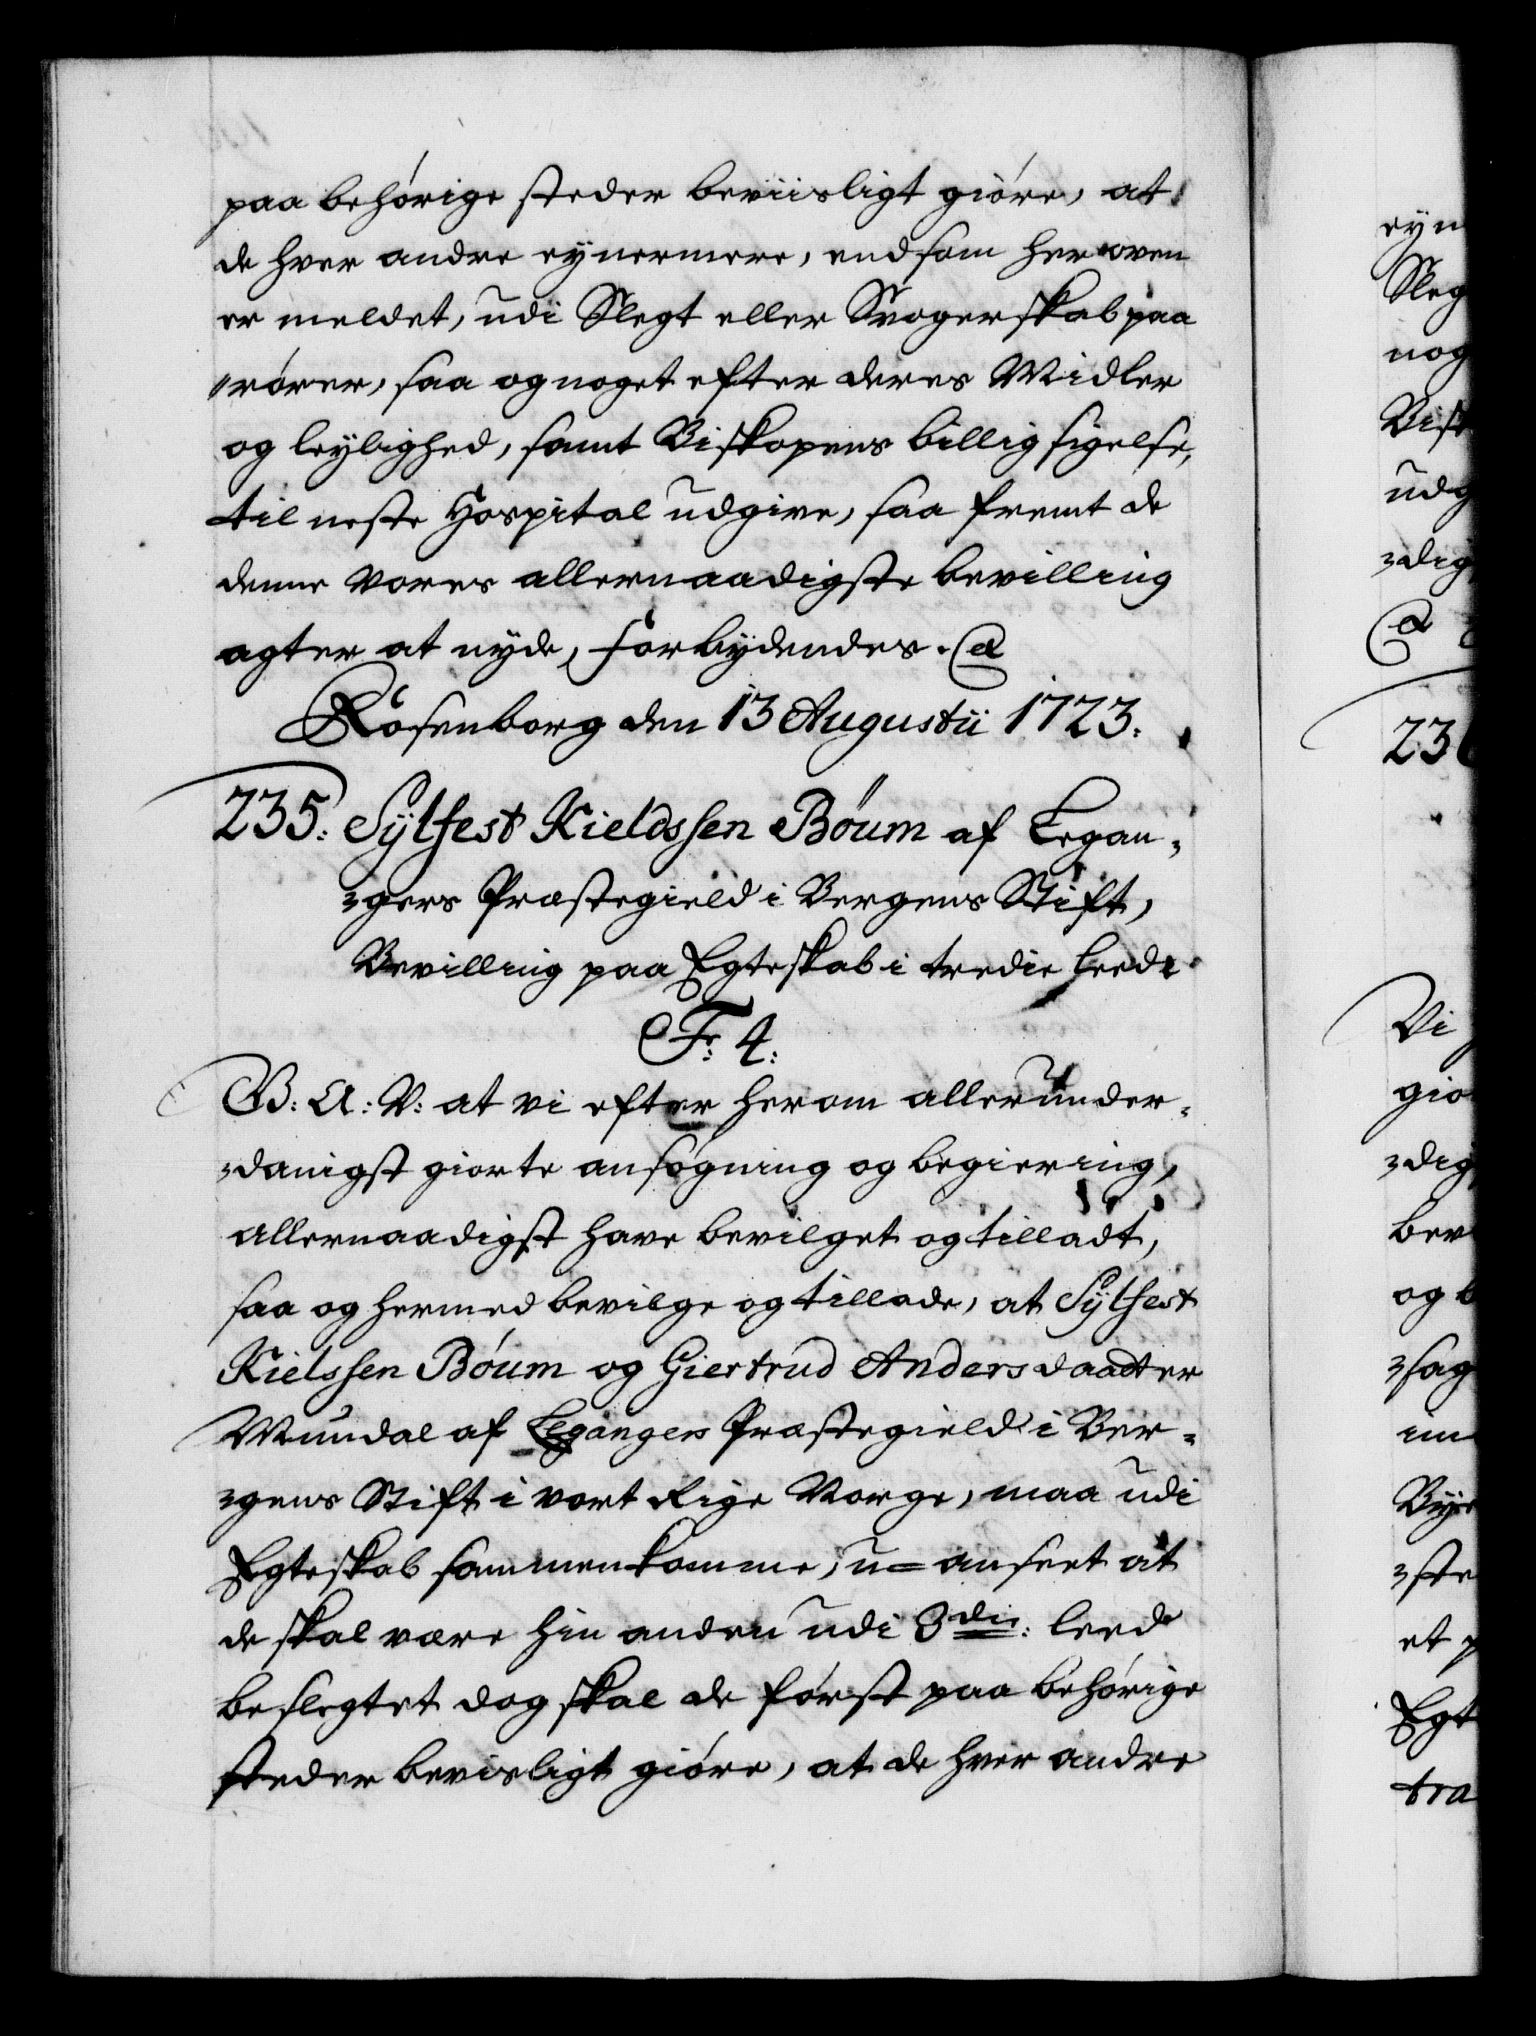 paa behörige steder beviisligt giöre, at
de hver andre ey nermere, end som her oven
er meldet, udi Slegt eller Svogerskab paa
rörer, saa og noget efter deres Midler
og leylighed, samt Biskopens billigsigelse,
til neste Hospital udgive, saa fremt de
denne Vores allernaadigste bevilling
agter at nyde, Forbydendes. &
Rosenborg den 13 Augustii 1723.
235: Sÿlfest Kieldssen Böum af Legan-
gers Præstegield i Bergens Stift,
Bevilling paa Egteskab i tredie Leed
Fr: 4:
G: A: V: at vi efter herom allerunder-
danigst giorte ansögning og begiering,
allernaadigst have bevilget og tilladt,
saa og hermed bevilge og tillade, at Sÿlfest
Kielssen Böum og Giertrud Andersdaatter
Mundal af Leganger Præstegield i Ber-
gens Stift i vort Rige Norge, maa udi
Egteskab sammenkomme, u=anseet at
de skal være hin anden udi 3die: Leed
beslegtet dog skal de först paa behörige
steder bevisligt giöre, at de hver andre
eyn
Sleg
nog
Bisk
udg
dig
&
236
Vi
gio
dig
bev
og b
sag
im
Bye
ste
et p
Egt
tra